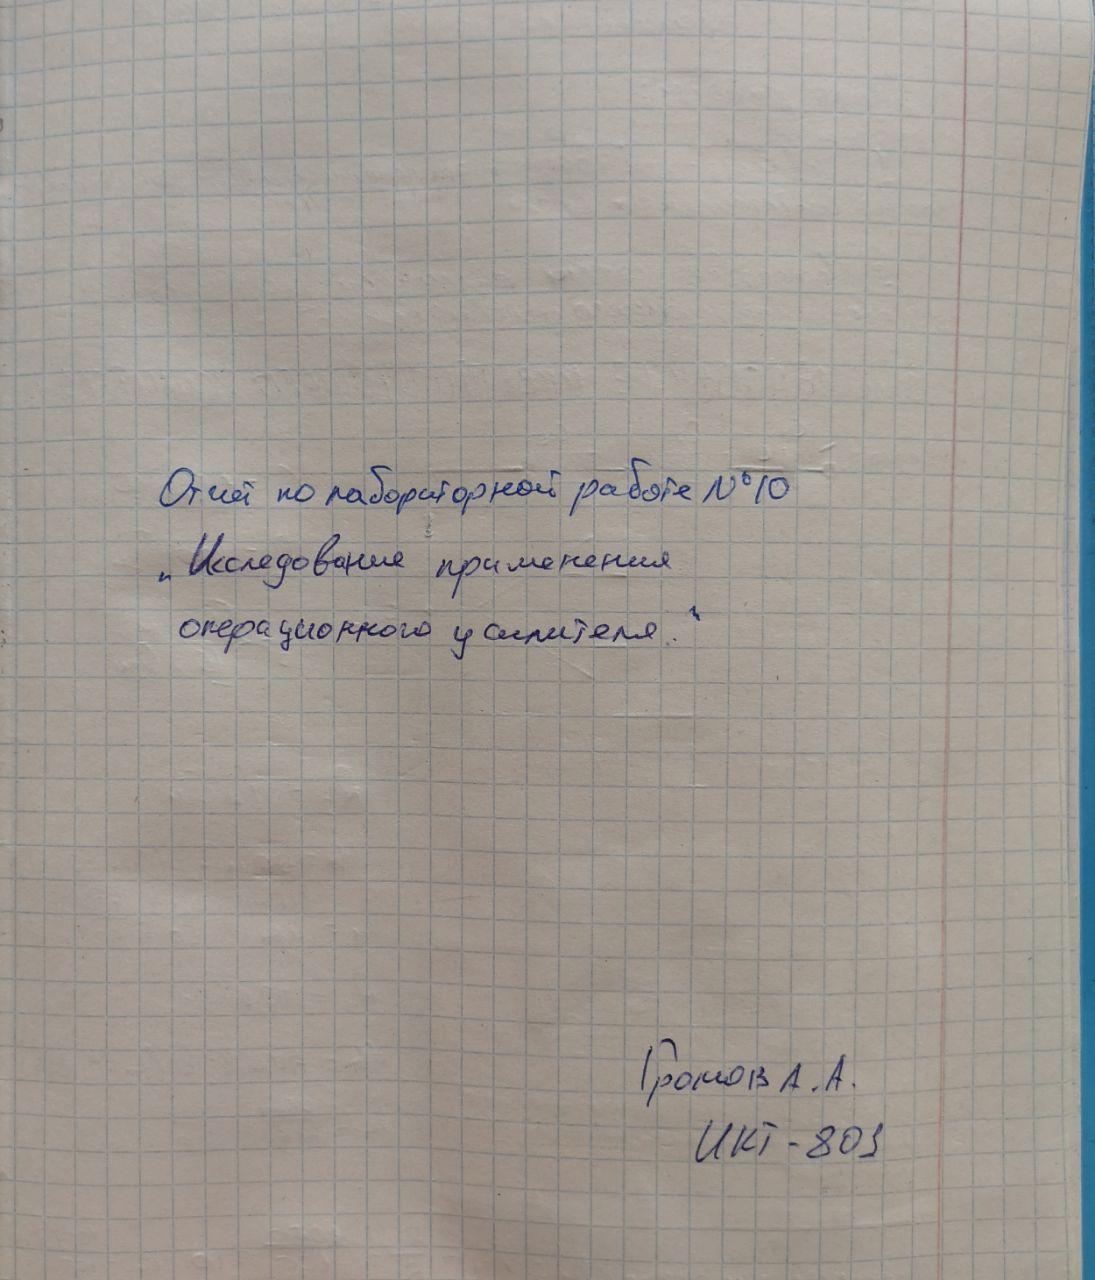 Отчет по лабораторной работе №10
„Исследование применения
операционного усилителя."
Громов А.А.
ИКТ-801